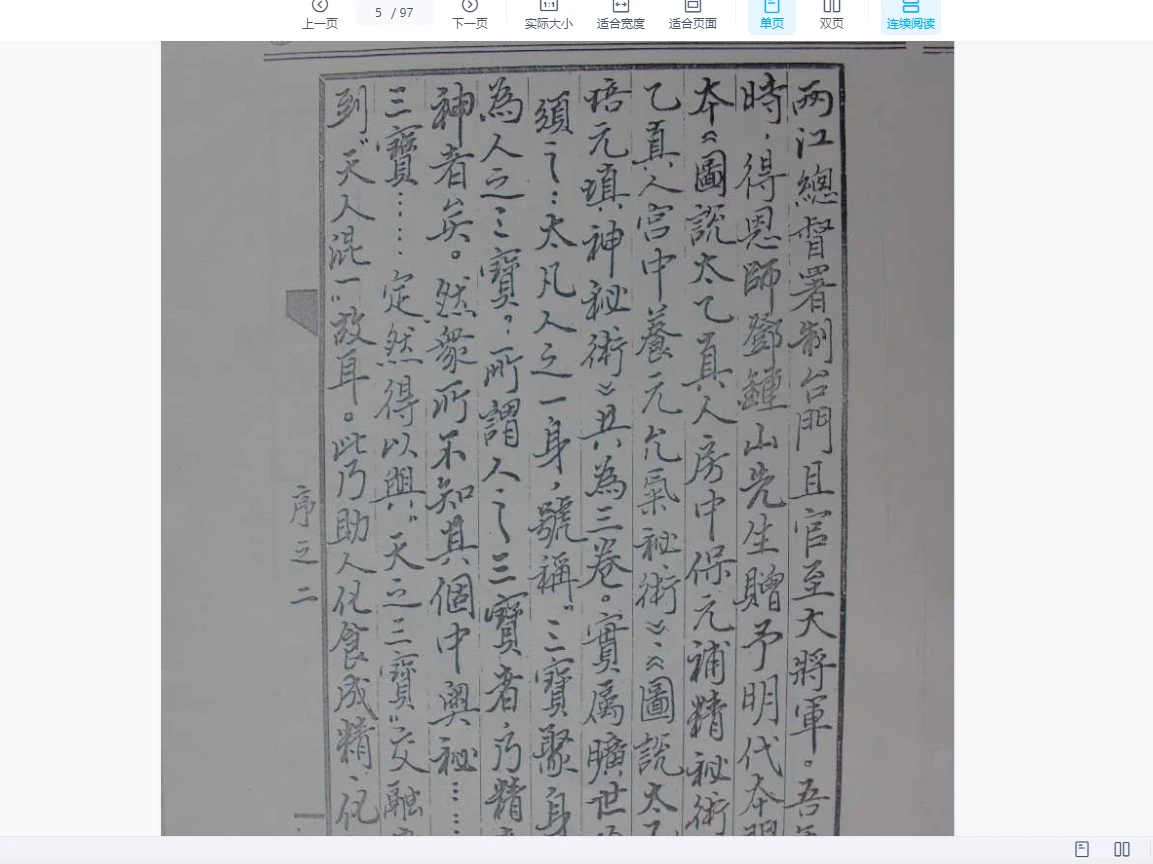 上一页
5 / 97
下一页
实际大小
适合宽度
适合页面
单页
双页
连续阅读
两江總督署制台門且官至大將軍。吾
時，得恩師鄧鍾山先生贈予明代本
本《圖説太乙真人房中保元補精秘術
乙真人宫中養元允氣秘術》、《圖説太
培元填神秘術》共為三卷。實屬曠世
須之…太凡人之一身，號稱“三寶聚身
為人之三寶？所謂人之三寶者，乃精
神者矣。然衆所不知其個中奥秘……
三寶……定然得以與“天之三寶”交融
到“天人混一”故耳。此乃助人化食成精、化
序之二